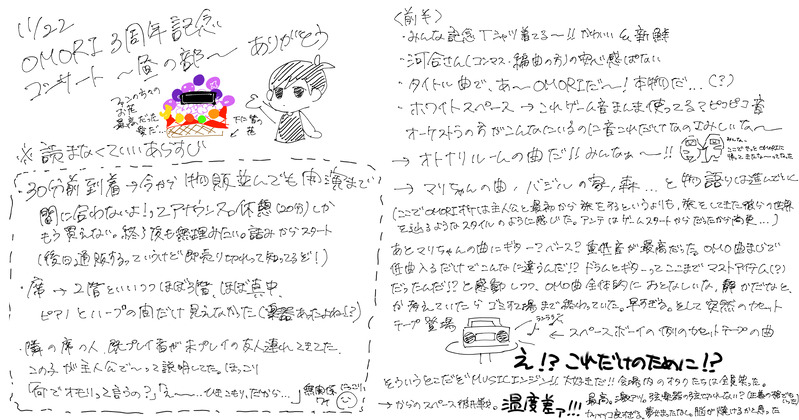 11/22
OMORI 3周年記念
コンサート 〜昼の部〜 ありがとう
ファンの方々の
お花
最高だった
※読まなくていいあらすじ
・30分前到着→今から物販並んでも開演まで
間に合わないよ!ってアナウンス。休憩(20分)しか
もう買えない。終了後も無理みたい。詰みからスタート
(後日通販するっていうけど即売り切れって知ってるぞ!)
・席→2階といいつつほぼ3階、ほぼ真中、
ピアノとハープの間だけ見えなかった(楽器あったよね!?)
・隣の席の人、既プレイ者が未プレイの友人連れてきてた
この子が主人公で〜って説明してた。ほっこり
「何でオモリって言うの?」「え〜…ひきこもり、だから…」
<前半>
・みんな記念Tシャツ着てる〜!! かわいい&新鮮
・河合さん(コンマス・編曲の方)の安心感ぱない
・タイトル曲で、あ〜OMORIだ〜!本物だ…(?)
・ホワイトスペース→これゲーム音まんま使ってる?ピコピコ音
オーケストラの方がこんなにいるのに音これだけなのおもしろいな〜
→オトナリルームの曲だ!! みんなぁ〜!!
→マリちゃんの曲、バジルの家、森…と物語りは進んでいく
(ここでOMORIオケは主人公と最初から旅をするというよりも、旅をしてきた彼らの世界
を辿るようなスタイルのように感じた。アンテはゲームスタートからだったから尚更…)
あとマリちゃんの曲にギター?ベース?重低音が最高だった。OMO曲まじで
低曲入るだけでこんなに違うんだ!? ドラムとギターってここまでマストアイテム(?)
だったんだ!?と感動しつつ、OMO曲全体的におとなしいな、静かだなと、
か考えていたらゴミすて場まで終わっていた。早すぎる。そして突然のカセット
テープ登場
←スペースボーイの例のカセットテープの曲
え!?これだけのために!?
そういうとこだぞMUSICエンジン!! 大好きだ!! 会場内のオタクたちは全員笑った。
→からのスペース彼氏戦。温度差ァ!!!